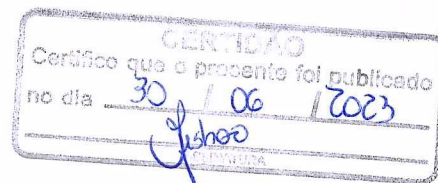 CERTIDÃO
Certifico que o presente foi publicado
no dia 30 / 06 / 2023